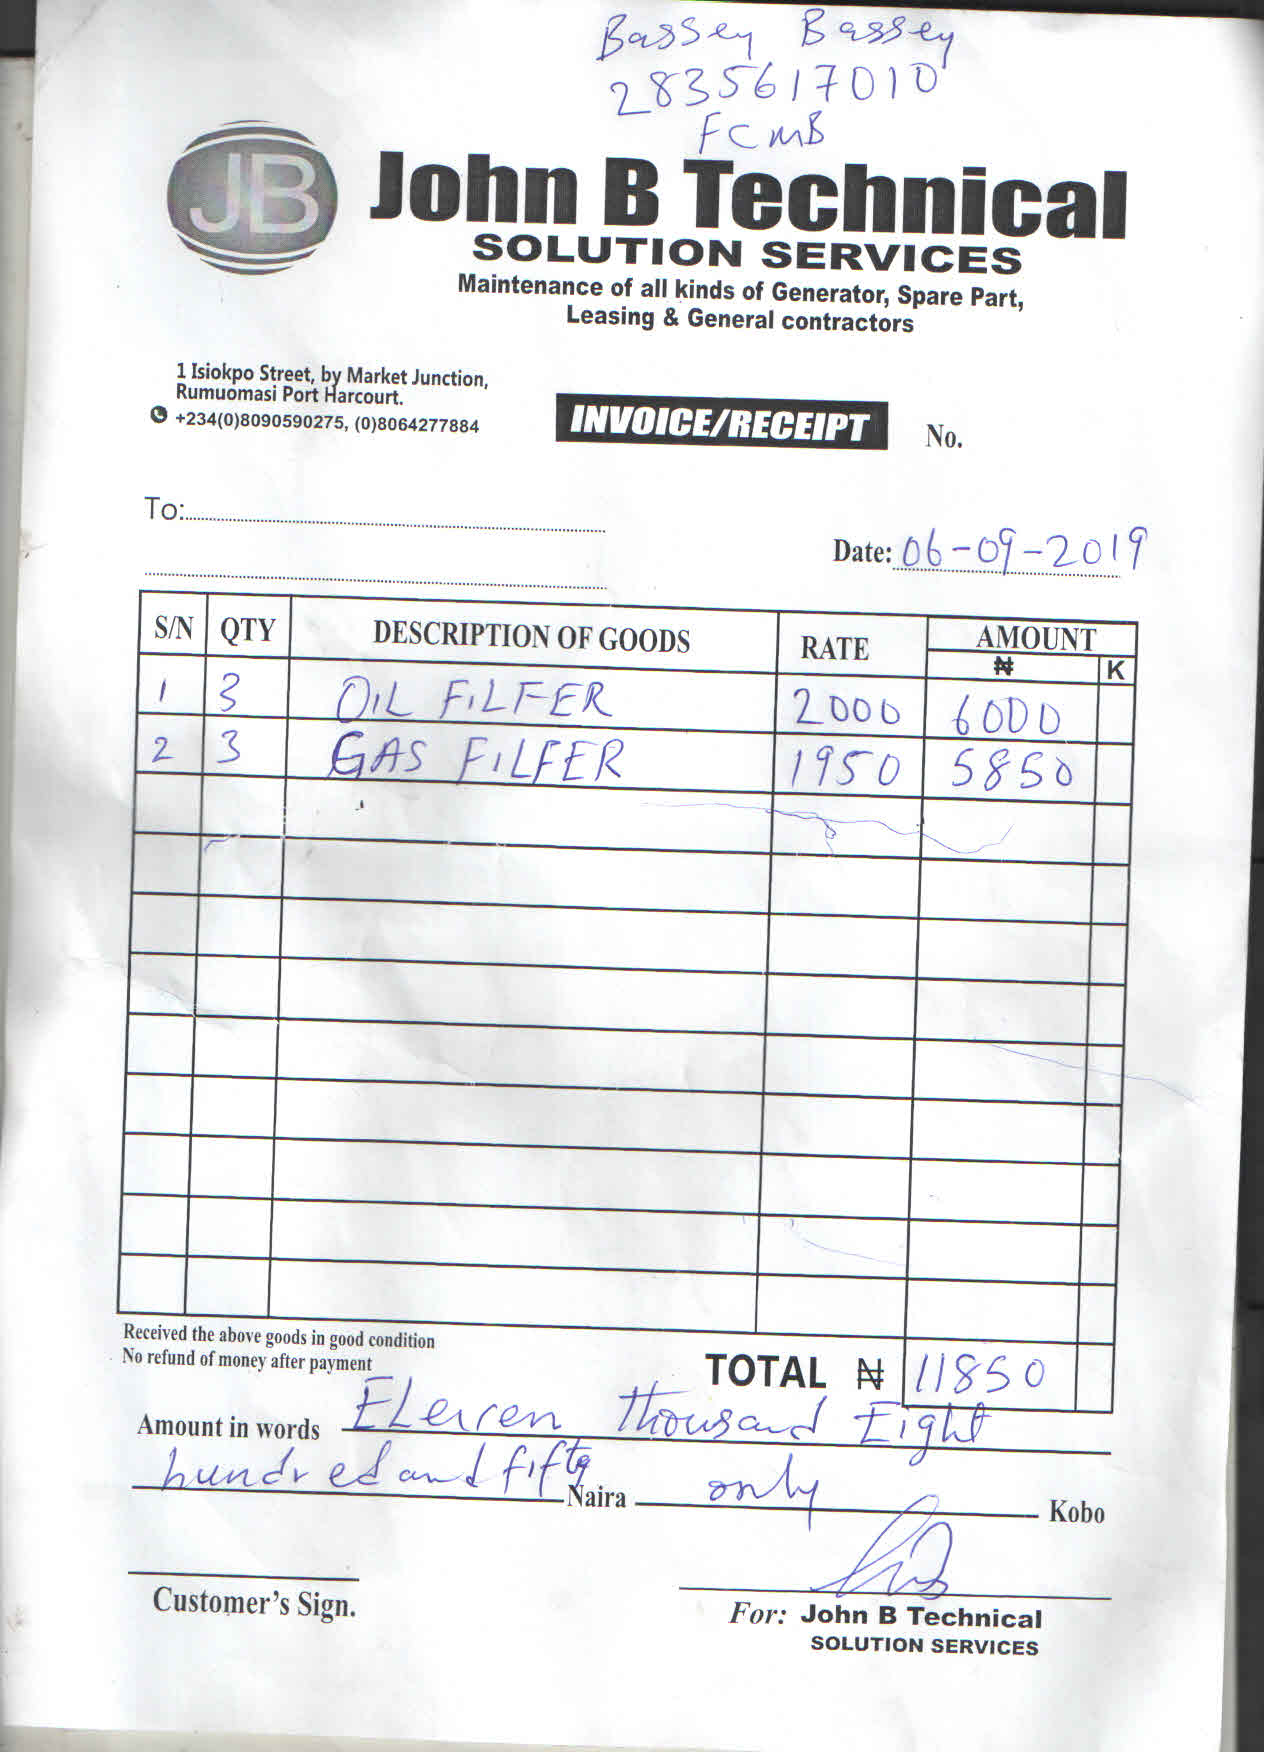 Bassey Bassey
2835617010
FCMB
JB
John B Technical
SOLUTION SERVICES
Maintenance of all kinds of Generator, Spare Part,
Leasing & General contractors
1 Isiokpo Street, by Market Junction,
Rumuomasi Port Harcourt.
+234(0)8090590275, (0)8064277884
INVOICE/RECEIPT No.
To:
Date: 06-09-2019
S/N QTY DESCRIPTION OF GOODS RATE AMOUNT
₦ K
1 3 OIL FILFER 2000 6000
2 3 GAS FILFER 1950 5850
Received the above goods in good condition
No refund of money after payment
TOTAL ₦ 11850
Amount in words ELeven thousand Eight
hundred and fifty Naira only Kobo
Customer's Sign.
For: John B Technical
SOLUTION SERVICES